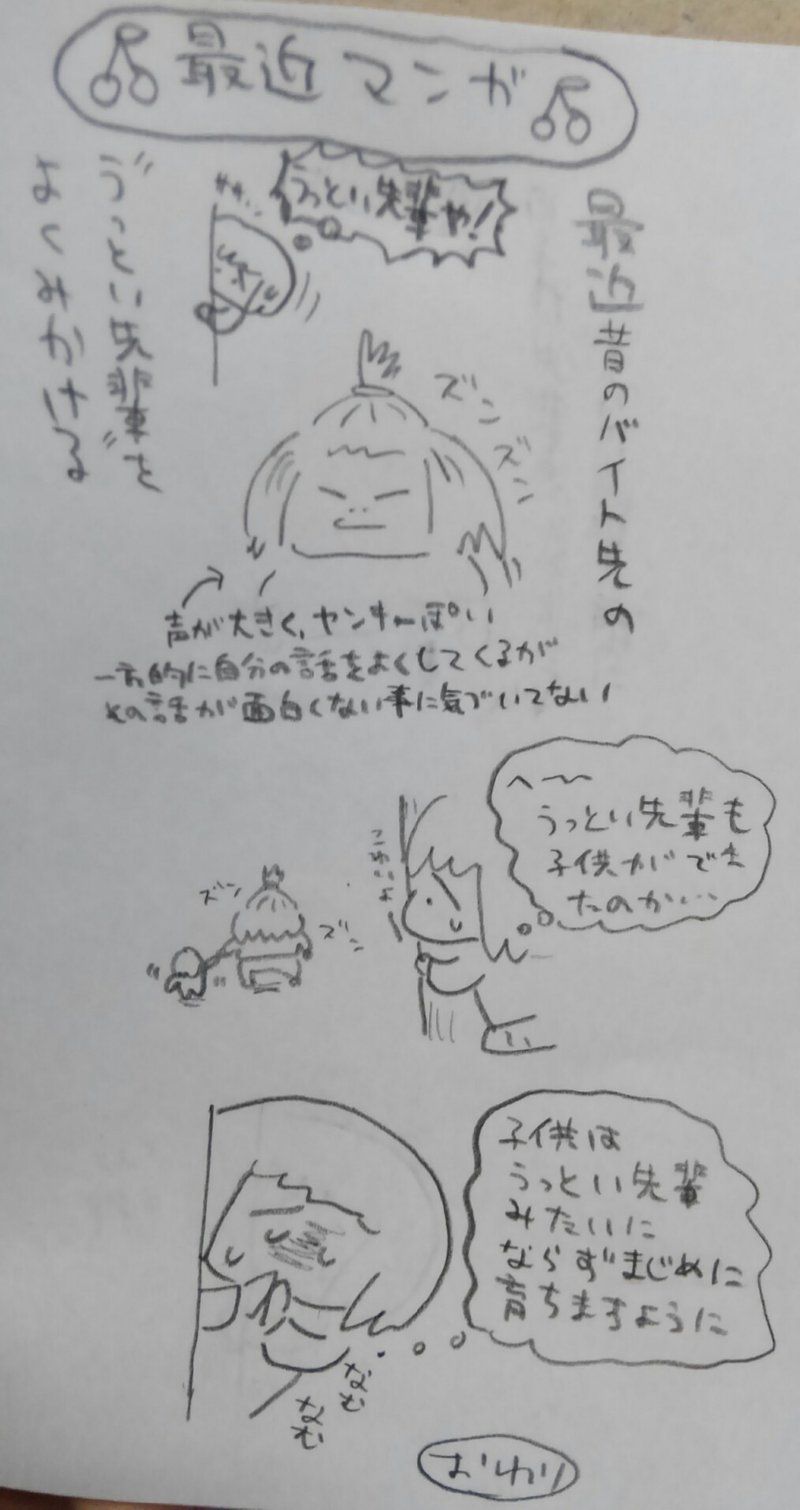 最近マンガ
最近昔のバイト先の
"うっとい先輩"を
よくみかける
ササ…
うっとい先輩や!
ズン
ズン
声が大きく、ヤンキーぽい
一方的に自分の話をよくしてくるが
その話が面白くない事に気づいてない
へ〜
うっとい先輩も
子供ができ
たのか…
こわいよ
ズン
ズン
子供は
うっとい先輩
みたいに
ならずまじめに
育ちますように
なむ
なむ
おわり